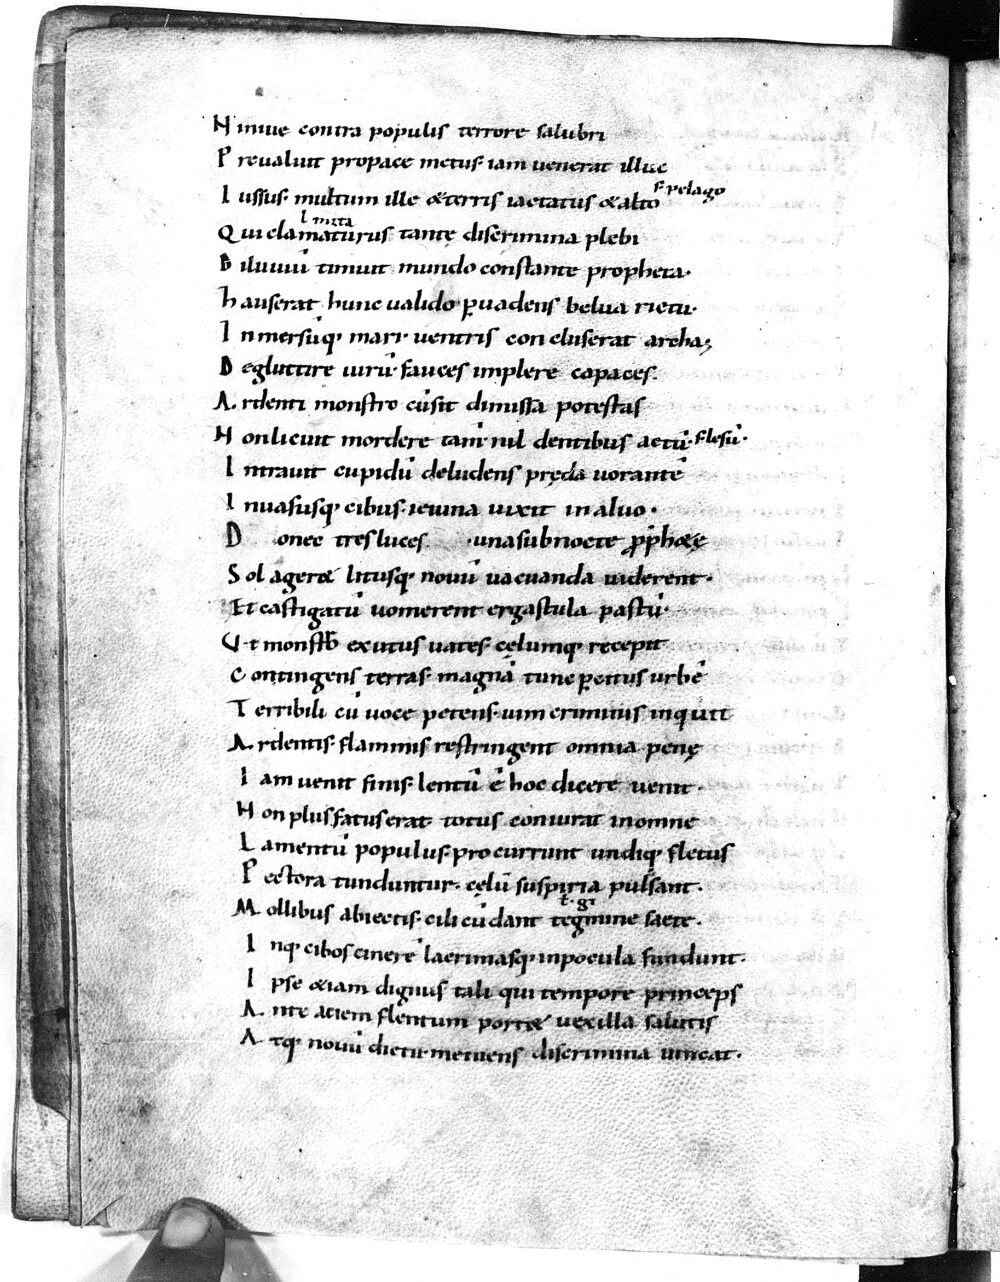 Niniue contra populis terrore salubri
Preualuit propace metus· iam uenerat illuc
Iussus· multum ille &terris iactatus &alto s· pelago
Qui clamaturus tantę discrimina plebi
l mina
Diluuiū timuit mundo constante propheta·
hauserat hunc ualido puadens belua rictu·
Inmersūq; mari· uentris concluserat archa;
Degluttire uirū· fauces implere capaces·
Ardenti monstro cū sit dimissa potestas
Non licuit mordere tam· nil dentibus actū· flesū·
Intrauit cupidū deludens pręda uorantē
Inuasusq; cibus· ieiuna uixit in aluo·
Donec tres luces ·una sub nocte pph&ę
Sol ager& litusq; nouū uacuanda uiderent·
Et castigatū uomerent ergastula pastū·
Vt monstro exutus uates· cęlumq; recepit
Contingens terras· magnā tunc peritus urbē
Terribili cū uoce petens· uim criminis inquit
Ardentis· flammis restringent omnia penę
Iam uenit finis· lentū ē hoc dicere uenit·
Non plus fatus erat· totus coniurat in omne
Lamentū populus· procurrunt undiq; fletus
Pectora tunduntur· cęlū suspiria pulsant·
Mollibus abiectis· cilicū dant tegmine saete·
t· gi
Inq; cibos cinerē lacrimasq; inpocula fundunt·
Ipse &iam dignus tali qui tempore princeps
Ante aciem flentum port& uexilla salutis
Atq; nouū dictu· metuens discrimina uincat·